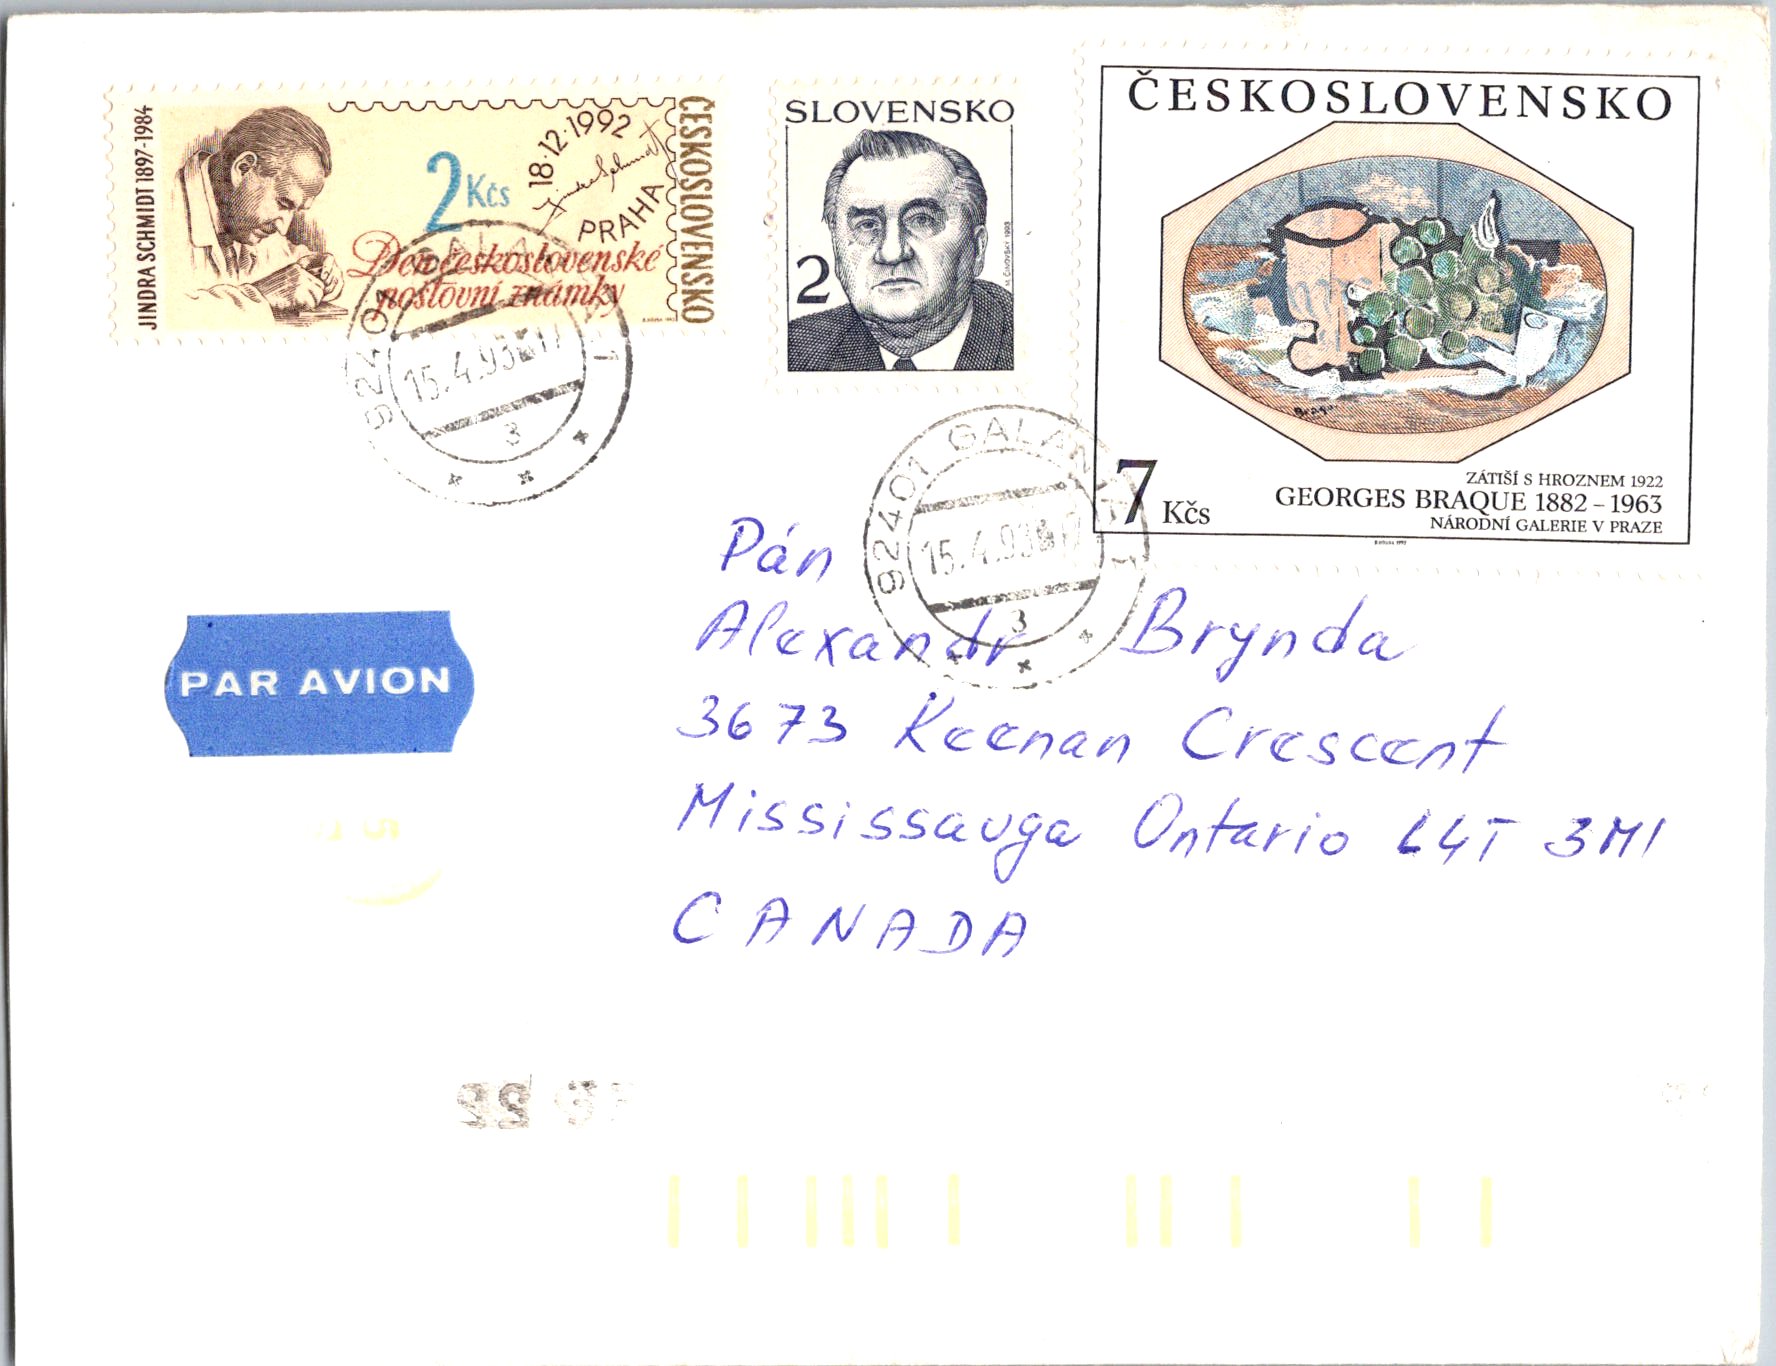 JINDRA SCHMIDT 1897-1984
2 Kčs
18·12·1992
Jindra Schmidt
PRAHA
Den československé
poštovní známky
ČESKOSLOVENSKO
SLOVENSKO
2
M. ČINOVSKÝ 1993
ČESKOSLOVENSKO
Braque
7 Kčs
ZÁTIŠÍ S HROZNEM 1922
GEORGES BRAQUE 1882 – 1963
NÁRODNÍ GALERIE V PRAZE
924 01 GALANTA 1
15.4.93-17
3
924 01 GALANTA 1
15.4.93-17
3
PAR AVION
Pán
Alexandr Brynda
3673 Keenan Crescent
Mississauga Ontario L4T 3M1
CANADA